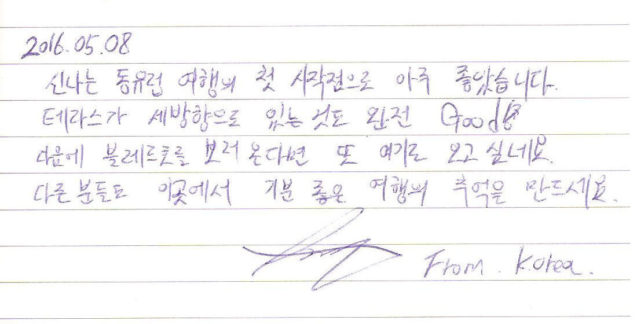 2016.05.08
신나는 동유럽 여행의 첫 시작점으로 아주 좋았습니다.
테라스가 세방향으로 있는것도 완전 Good!
다음에 블레드호를 보러 온다면 또 여기로 오고 싶네요.
다른분들도 이곳에서 기분 좋은 여행의 추억을 만드세요.
From. Korea.